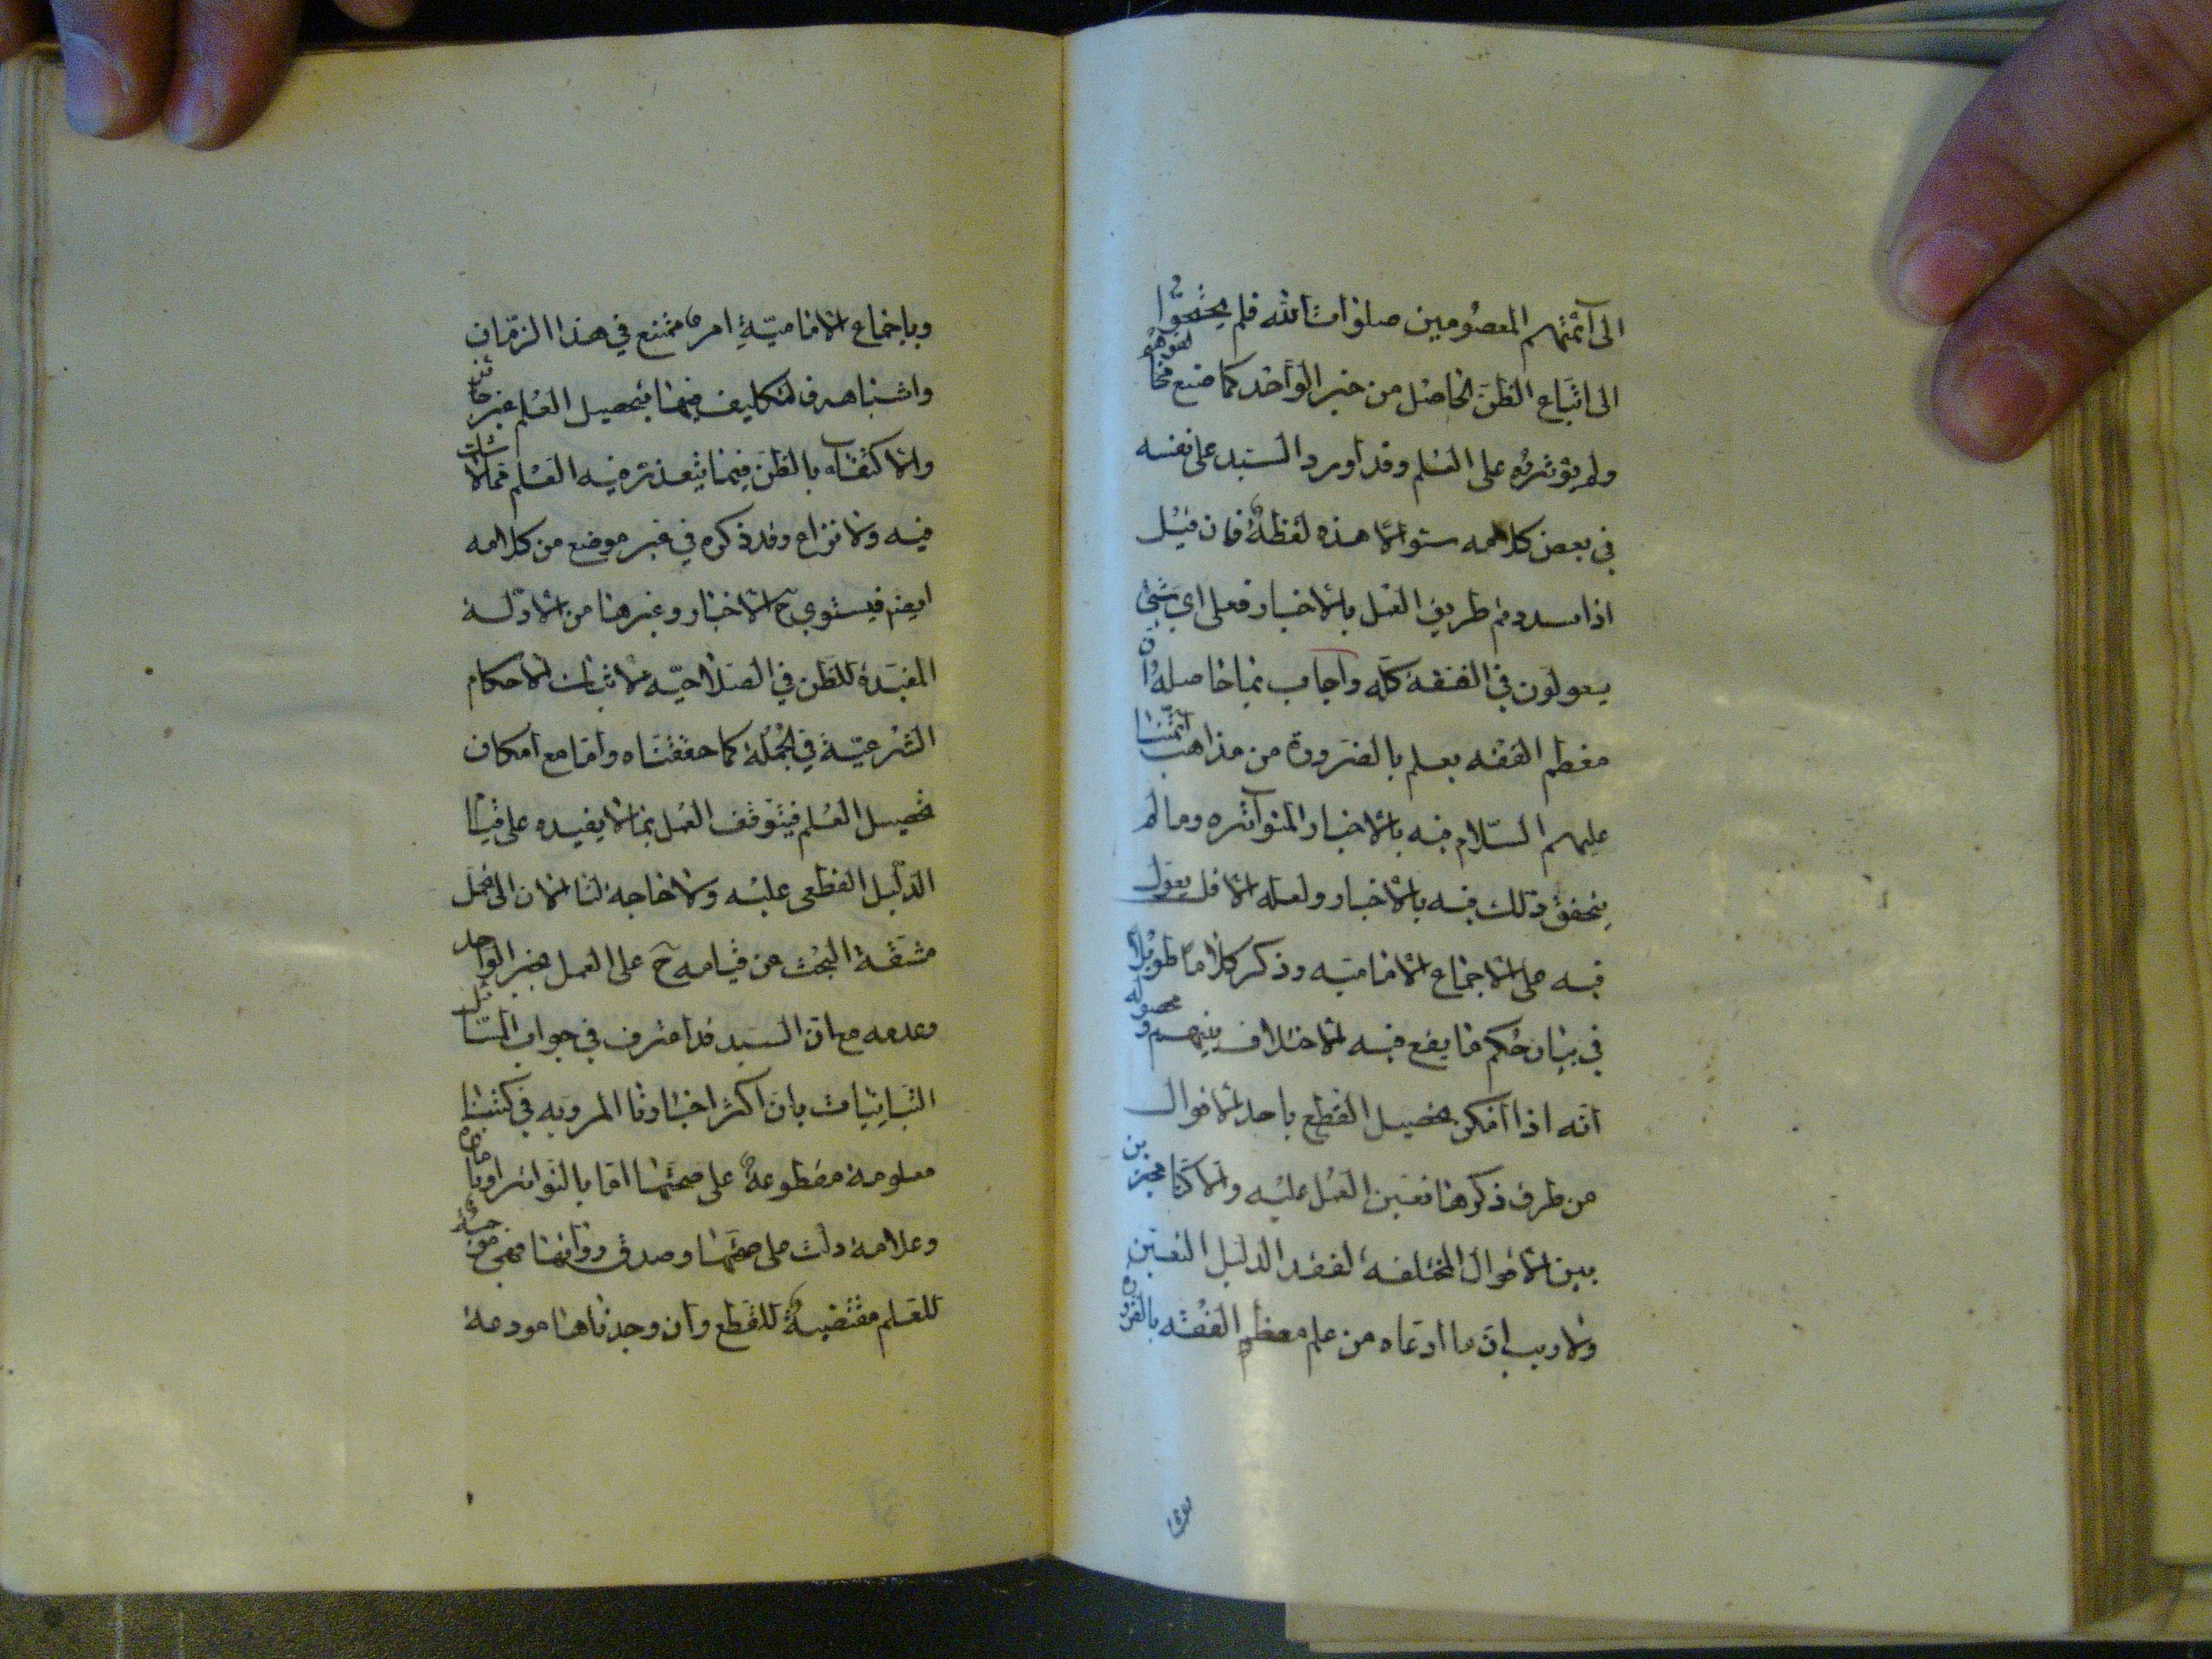 الى أئمتهم المعصومين صلوات الله فلم يحتجوا
الى اتباع الظن الحاصل من خبر الواحد كما صنع مخالفوهم
ولم يؤثروه على العلم وقد أورد السيد على نفسه
في بعض كلامه سؤالا هذه لفظه فان قيل
اذا سددتم طريق العمل بالاخبار فعلى اي شئ
يعولون في الفقه كله وأجاب بما حاصله ان
معظم الفقه يعلم بالضرورة من مذاهب أئمتنا
عليهم السلام فيه بالاخبار المتواتره وما لم
يتحقق ذلك فيه بالاخبار ولعله الاقل يعول
فيه على الاجماع الاماميه وذكر كلاما طويلا
في بيان حكم ما يقع فيه الاختلاف بينهم ومحصوله
أنه اذا أمكن تحصيل القطع باحد الاقوال
من طرق ذكرها تعين العمل عليه والا كنا مخيرين
بين الاقوال المختلفه لفقد الدليل التعين
ولا ريب ان ما ادعاه من علم معظم الفقه بالضرورة
وباجماع الاماميّة امر ممتنع في هذا الزمان
واشباهه فالتكليف فيها بتحصيل العلم غير جائز
والاكتفاء بالظن فيما يتعذر فيه العلم مما لا شك
فيه ولا نزاع وقد ذكره في غير موضع من كلامه
ايضم فيستوي ح الاخبار وغيرها من الادلة
المفيدة للظن في الصلاحيّه لاثبات الاحكام
الشرعيّة في الجملة كما حققناه وأما مع امكان
تحصيل العلم فيتوقف العمل بما لا يفيده على قيام
الدليل القطعى عليه ولا حاجه لنا الان الى تحمل
مشقة البحث عن قيامه ح على العمل بخبر الواحد
وعدمه مع ان السيد قد اعترف في جواب المسائل
التبانيات بان اكثر اخبارنا المرويه في كتبنا
معلومة مقطوعة على صحتها اما بالتواتر او بامارة
وعلامة دلت على صحتها وصدق رواتها فهي موجبة
للعلم مقتضية للقطع وان وجدناها مودعة